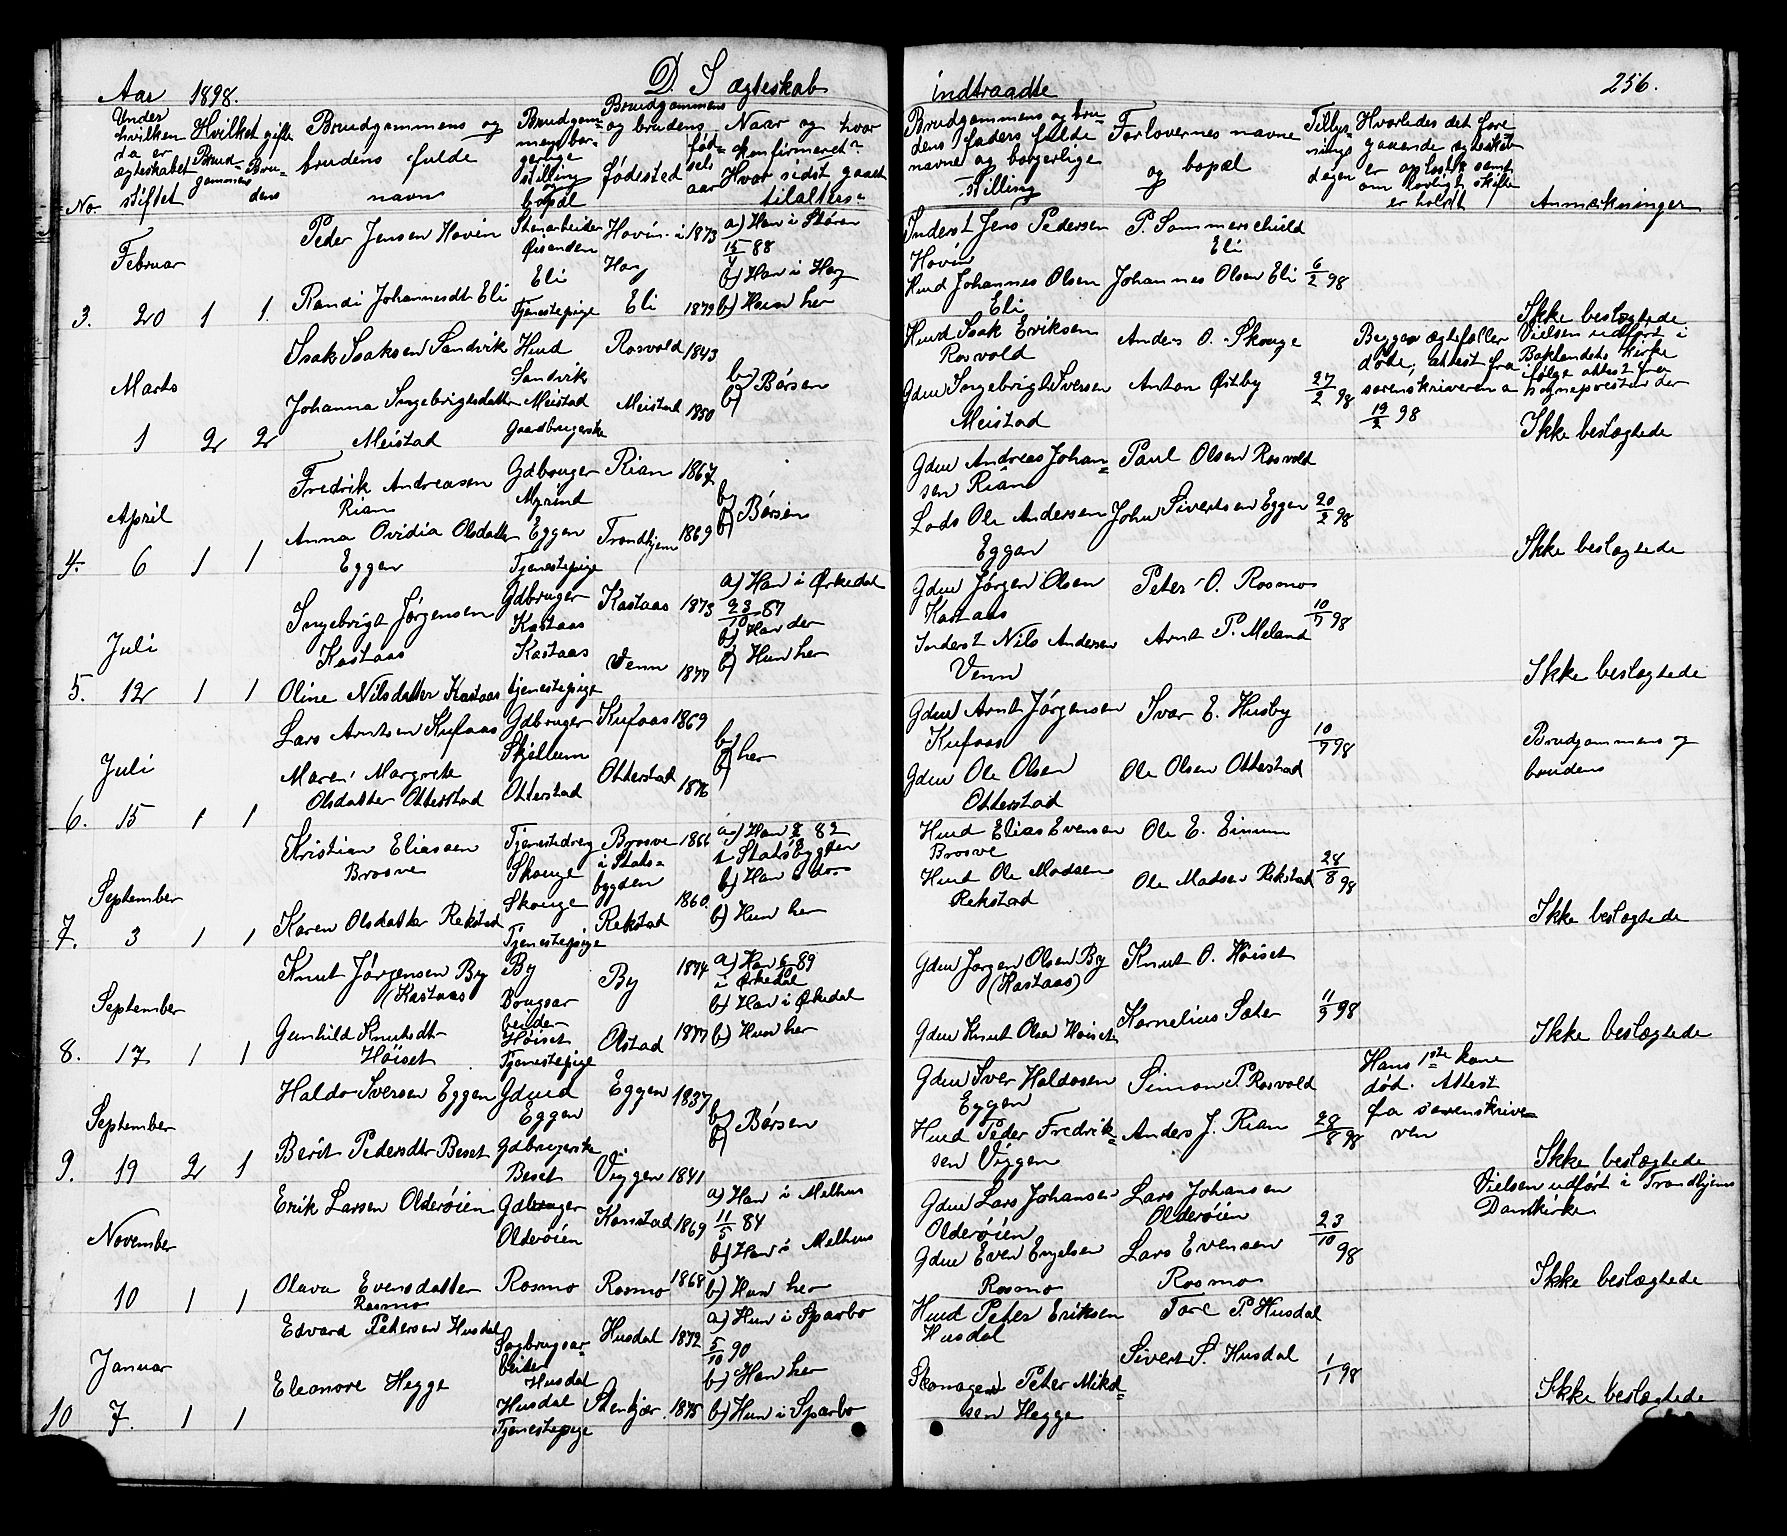 Aar 1898.
D. I ægteskab indtraadte
256.
No.
Under hvilken da er ægteskabet stiftet
Hvilket gifte
Brudgommens
Brudens
Brudgommens og brudens fulde navn
Brudgommens borgerlige stilling og bopæl
Brudgommens og brudens fødested
fødselsaar
Naar og hvor konfirmeret? Hvor sidst gaaet tilalters
Brudgommens og brudens faders fulde navne og borgerlige stilling
Forlovernes navne og bopæl
Tillysningsdagen
Hvorledes det foregaaende ægteskab er opløst, samt om lovligt skifte er holdt
Anmærkninger
3.
Februar
20
1
1.
Peder Jensen Hovin
Stenarbeider
Øisanden
Eli
Hovin i
Horg
1873
a) Han i Støren
88
b) Han i Horg
Randi Johannesdt. Eli
Tjenestepige
Eli
1879
b) Hun her
Inderst Jens Pedersen
Hovin
Husd Johannes Olsen
Eli
P. Sommerschield
Eli
Johannes Olsen Eli
6/2 98
Ikke beslægtede
Marts
1
2
2
Isak Isaksen Sandvik
Husd
Sandvik
Rosvold
1843
b)
b) Børsen
Johanna Ingebrigtsdatter
Meistad
Meistad
Gaardbrugerske
Meistad
1850
Husd Isak Eriksen
Rosvold
Gdm Ingebrigt Iversen
Meistad
Anders O. Skauge
Anton Østby
27/2 98
Begges ægtefæller
døde, attest fra
sorenskriveren a
19/2 98
Vielsen udført i
Baklandets kirke
ifølge attest fra
sognepresten der
Ikke beslægtede
4.
April
6
1
1
Fredrik Andreasen
Rian
Gdbruger
Myrind
Rian
1867
b)
b) Børsen
Anna Ovidia Olsdatter
Eggen
Eggen
Tjenestepige
Trondhjem
1869
Gdm Andreas Johansen
Rian
Lods Ole Andersen
Eggen
Paul Olsen Rosvold
John Sivertsen Eggen
20/2 98
Ikke beslægtede
5.
Juli
12
1
1
Ingebrigt Jørgensen
Kastaas
Gdbruger
Kastaas
Kastaas
1873
a) Han i Ørkedal
23/10 87
b) Han der
Oline Nilsdatter Kastaas
Kastaas
tjenestepige
Venn
1877
b) Hun her
Gdm Jørgen Olsen
Kastaas
Inderst Nils Andersen
Venn
Peter O. Rosmo
Arnt P. Meland
10/7 98
Ikke beslægtede
6.
Juli
15
1
1
Lars Arntsen Kufaas
Gdbruger
Skjellum
Kufaas
1869
b)
b) her
Maren Margrete
Olsdatter Otterstad
Otterstad
Otterstad
1876
Gdm Arnt Jørgensen
Kufaas
Gdm Ole Olsen
Otterstad
Ivar E. Husby
Ole Olsen Otterstad
10/7 98
Brudgommens og
brudens
7.
September
3
1
1
Kristian Eliasen
Brosve
Tjenestedreng
Skauge
Brosve
i Stadsbygden
1866
a) Han 82
i Stadsbygden
b) Han i do.
Karen Olsdatter Rekstad
Skauge
Tjenestepige
Rekstad
1860.
b) Hun her
Husd Elias Evensen
Brosve
Husd Ole Madsen
Rekstad
Ole E. Einum
Ole Madsen Rekstad
28/8 98
Ikke beslægtede
8.
September
17
1
1
Knut Jørgensen By
(Kastaas
By
Brugsarbeider
By
1874
a) Han 89
i Ørkedal
b) Han i Ørkedal
Gunhild Knutsdt.
Høiset
Høiset
Tjenestepige
Olstad
1877
b) Hun her
Gdm Jørgen Olsen By
(Kastaas)
Gdm Knut Olsen Høiset
Knut O. Høiset
Kornelius Sæter
11/9 98
Ikke beslægtede
9.
September
19
2
1
Haldo Iversen Eggen
Gdmd
Eggen
Eggen
1837
b)
b) Børsen
Berit Pedersdtr Beset
Gdbrugerske
Beset
Viggen
1841
Gdm Iver Haldosen
Eggen
Husd Peder Fredriksen
Viggen
Simon P. Rosvold
Anders J. Rian
28/8 98
Hans 1ste kone
død. Attest
fra sorenskriveren
Ikke beslægtede
November
10
1
1
Erik Larsen Olderøien
Gdbruger
Olderøien
Konstad
1869
a) Han i Melhus
84
b) Han i Melhus
Olava Evensdatter
Rosmo
Rosmo
Rosmo
1868
b) Hun her
Gdm Lars Johansen
Olderøien
Gdm Even Engelsen
Rosmo
Lars Johansen
Olderøien
Lars Evensen
Rosmo
23/10 98
Vielsen udført i Trondhjems
Domkirke
Ikke beslægtede
10
Januar
7.
1
1
Edvard Petersen Husdal
Sagbrugsarbeider
Husdal
Husdal
1872
a) Hun i Sparbo
5/10 90
b) Han her
Eleonore Hegge
Husdal
Tjenestepige
Stenkjær.
1875
b) Hun i Sparbo
Husd Peter Eriksen
Husdal
Skomager Peter Mikalsen
Hegge
Tore P. Husdal
Sivert P. Husdal
1/1 98
Ikke beslægtede